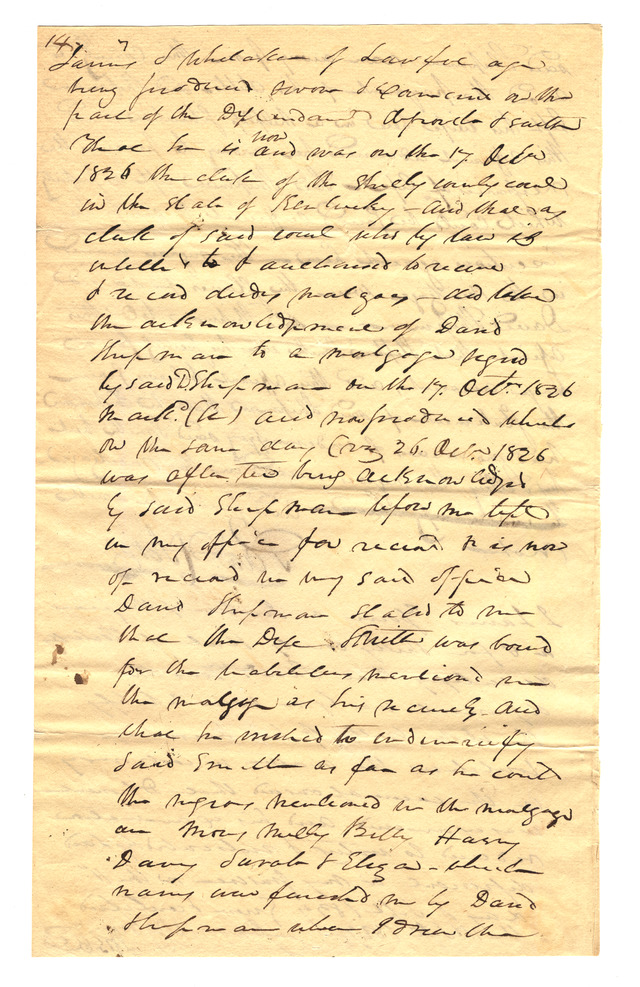 14
James S Whitaker of Lawful age
being produced sworn & Examined on the
part of the Defendant deposeth & saith
That he is now and was on the 17 Octr
1826 the clerk of the Shelby county court
in the State of Kentucky – and that as
clerk of said court who by law is
& authorised to receive
& record deeds mortgages – did take
the acknowledgement of David
Shipman to a mortgage signed
by said D. Shipman on the 17. Octr. 1826
markd. (A) and now produced which
on the same day (viz 26. Octr. 1826
was after being acknowledged
by said Shipman before me left
in my office for record & is now
of record in my said office
David Shipman stated to me
that the Deft. Smith was bound
for the liabilities mentioned in
the mortgage as his security and
that he wished to indemnify
said Smith as far as he could
the negroes mentioned in the mortgage
are Moses Milly Billy Harry
Davy Sarah & Eliza – which
names was furnished me by David
Shipman when I drew the